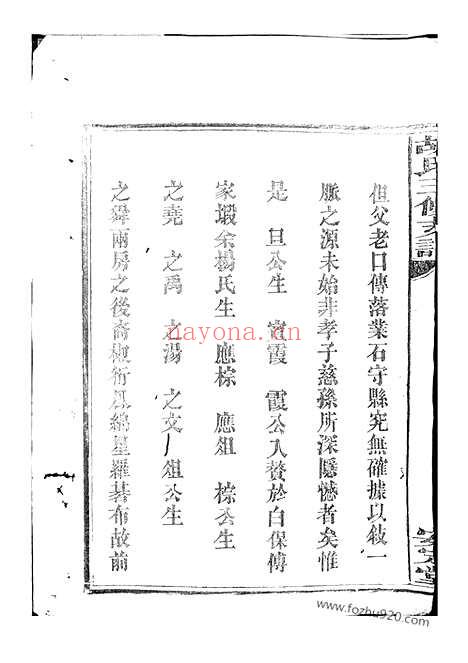 胡氏三修支譜
但父老口傳落業石守縣究無確據以敍一
脈之源未始非孝子慈孫所深隱憾者矣惟
是 旦公生 實霞 霞公入贅於白保傅
家塅余楊氏生 應棕 應俎 棕公生
之堯 之禹 之湯 之文 俎公生
之舜兩房之後裔椒衍瓜綿星羅碁布故前
安定堂
nayona.cn
www.fozhu920.com